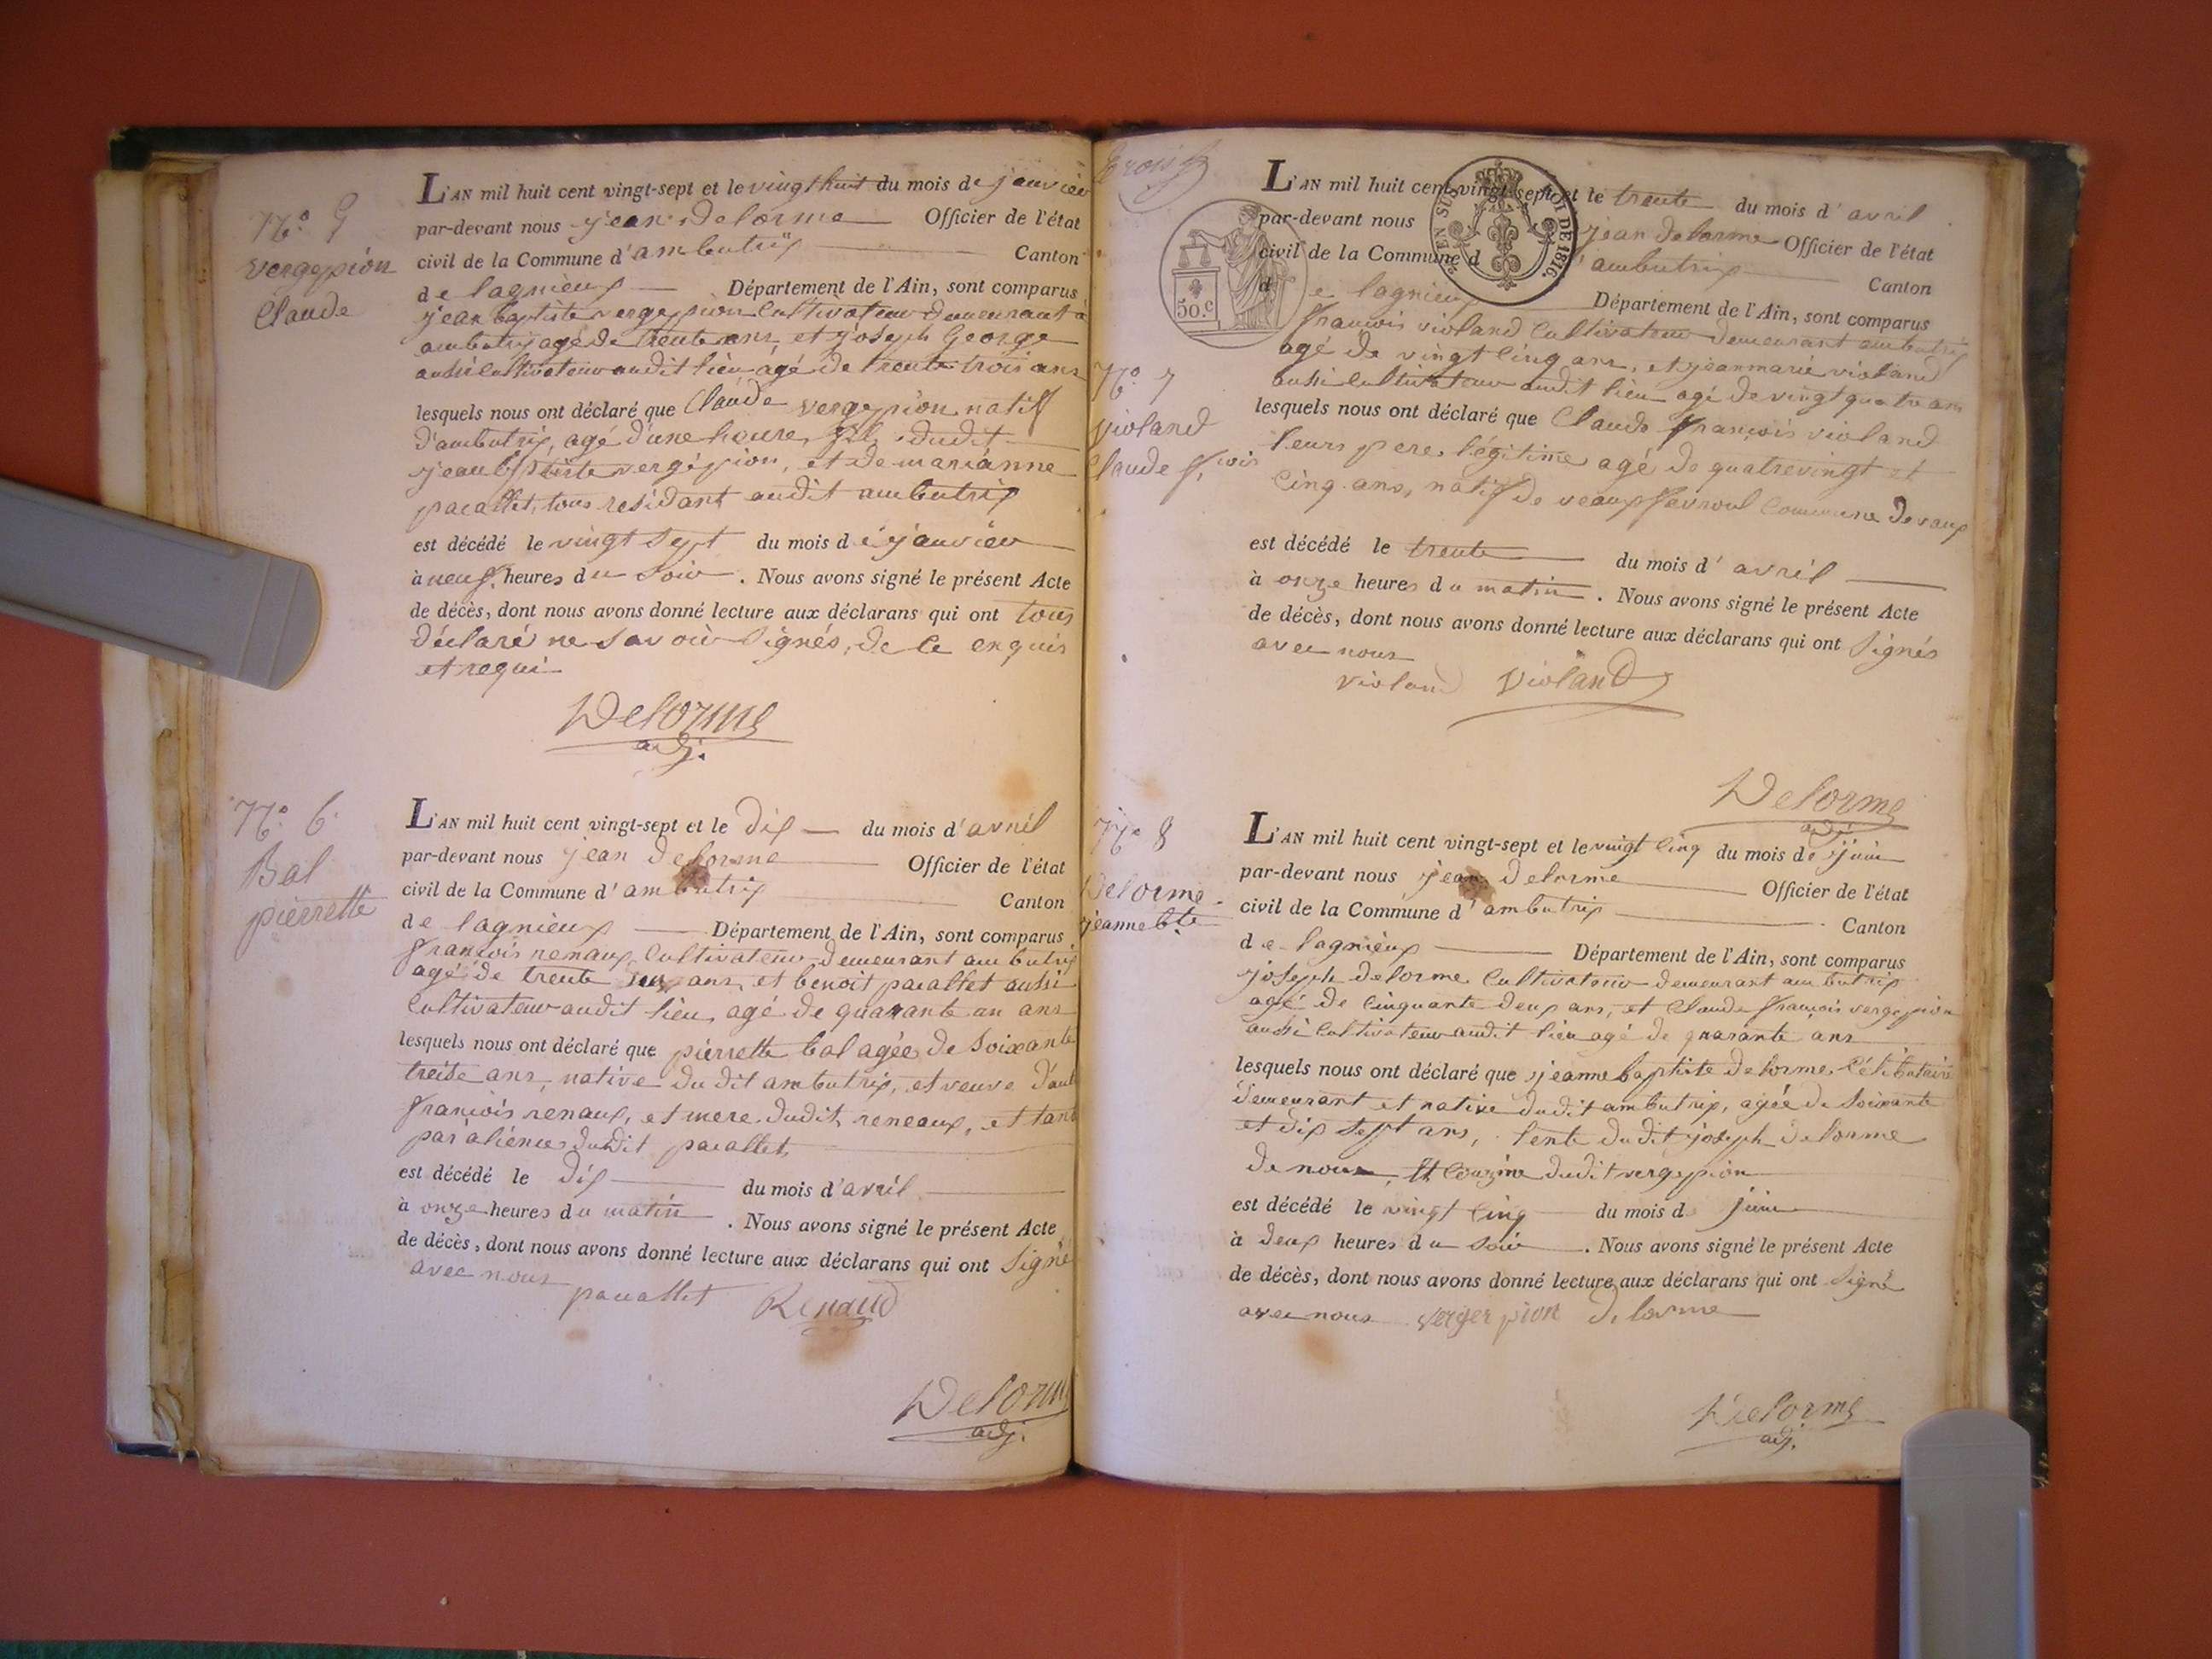 N.o 5
vergepion
Claude
L'AN mil huit cent vingt-sept et le vingt huit du mois de janvier
par-devant nous jean Delorme Officier de l'état
civil de la Commune d'ambutrix Canton
de lagnieux Département de l'Ain, sont comparus
jean baptiste vergepion Cultivateur demeurant à
ambutrix agé de trente ans, et joseph George
aussi Cultivateur audit lieu agé de trente trois ans
lesquels nous ont déclaré que Claude vergepion natif
d'ambutrix, agé d'une heure, fils dudit
jean bptiste vergépion, et de marianne
pacallet, tous residant audit ambutrix
est décédé le vingt sept du mois de janvier
à neuf heures du soir. Nous avons signé le présent Acte
de décès, dont nous avons donné lecture aux déclarans qui ont tous
déclaré ne savoir signés, de ce enquis
et requi
Delorme
adj.
N.o 6
Bal
pierrette
L'AN mil huit cent vingt-sept et le dix du mois d'avril
par-devant nous jean Delorme Officier de l'état
civil de la Commune d'ambutrix Canton
de lagnieux Département de l'Ain, sont comparus
françois renaux Cultivateur demeurant ambutrix
agé de trente ans, et benoit pacallet aussi
Cultivateur audit lieu, agé de quarante un ans
lesquels nous ont déclaré que pierrette bal agée de soixante
treize ans, native du dit ambutrix, et veuve d'aut
françois renaux, et mere dudit reneaux, et tante
par alience dudit pacallet
est décédé le dix du mois d'avril
à onze heures du matin. Nous avons signé le présent Acte
de décès, dont nous avons donné lecture aux déclarans qui ont signé
avec nous
pacallet Renaud
Delorme
adj.
trois
50.c
TIMBRE EN SUS LOI DE 1816.
N.o 7
violand
Claude f.cois
L'AN mil huit cent vingt-sept et le trente du mois d'avril
par-devant nous jean Delorme Officier de l'état
civil de la Commune d'ambutrix Canton
de lagnieux Département de l'Ain, sont comparus
françois violand Cultivateur demeurant ambutrix
agé de vingt cinq ans, et jean marie violand
aussi Cultivateur audit lieu agé de vingt quatre ans
lesquels nous ont déclaré que Claude françois violand
leurs pere légitime agé de quatrevingt et
cinq ans, natif de veaux fevroul Commune de vaux
est décédé le trente du mois d'avril
à onze heures du matin. Nous avons signé le présent Acte
de décès, dont nous avons donné lecture aux déclarans qui ont signés
avec nous
violand Violand
Delorme
adj.
N.o 8
Delorme
jeanne b.te
L'AN mil huit cent vingt-sept et le vingt cinq du mois de juin
par-devant nous jean Delorme Officier de l'état
civil de la Commune d'ambutrix Canton
de lagnieux Département de l'Ain, sont comparus
joseph Delorme Cultivateur demeurant ambutrix
agé de cinquante deux ans, et Claude françois vergepion
aussi Cultivateur audit lieu agé de quarante ans
lesquels nous ont déclaré que jeanne baptiste Delorme Célibataire
demeurant et native dudit ambutrix, agée de soixante
et dix sept ans, tente dudit joseph Delorme
de nous, et couzine dudit vergepion
est décédé le vingt cinq du mois de juin
à deux heures du soir. Nous avons signé le présent Acte
de décès, dont nous avons donné lecture aux déclarans qui ont signé
avec nous vergerpion delorme
Delorme
adj.